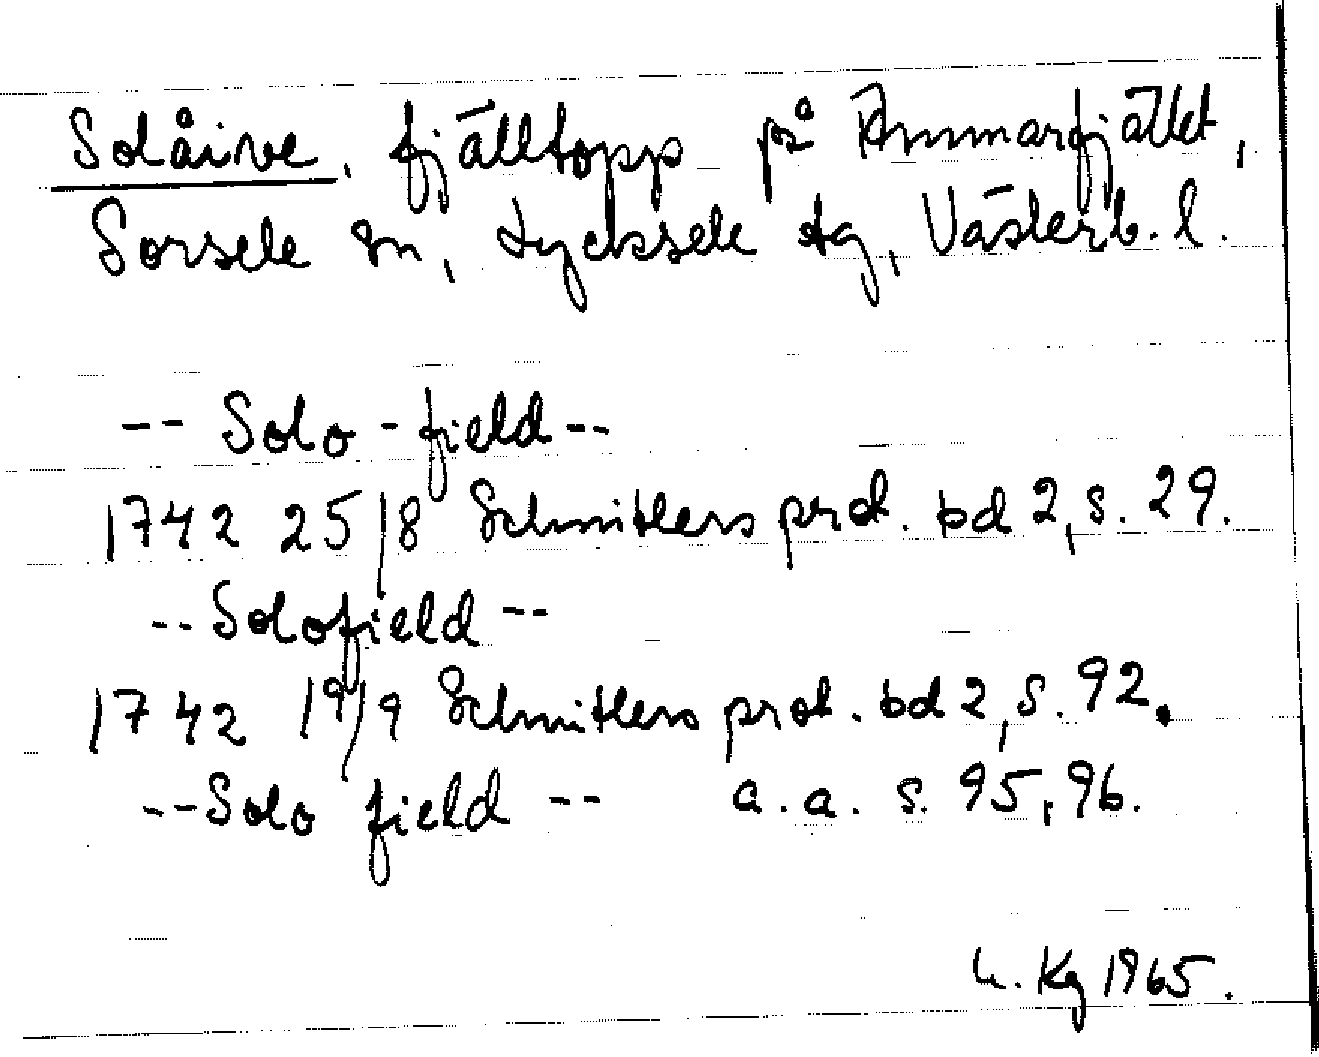 Solåive, fjälltopp på Ammarfjället,
Sorsele sn, Lycksele tg, Västerb. l.
-- Solo-field --
1742 25/8 Schnitlers prot. bd 2, s. 29.
-- Solofield --
1742 19/9 Schnitlers prot. bd 2, s. 92.
-- Solo field -- a.a. s. 95, 96.
Kg 1965.